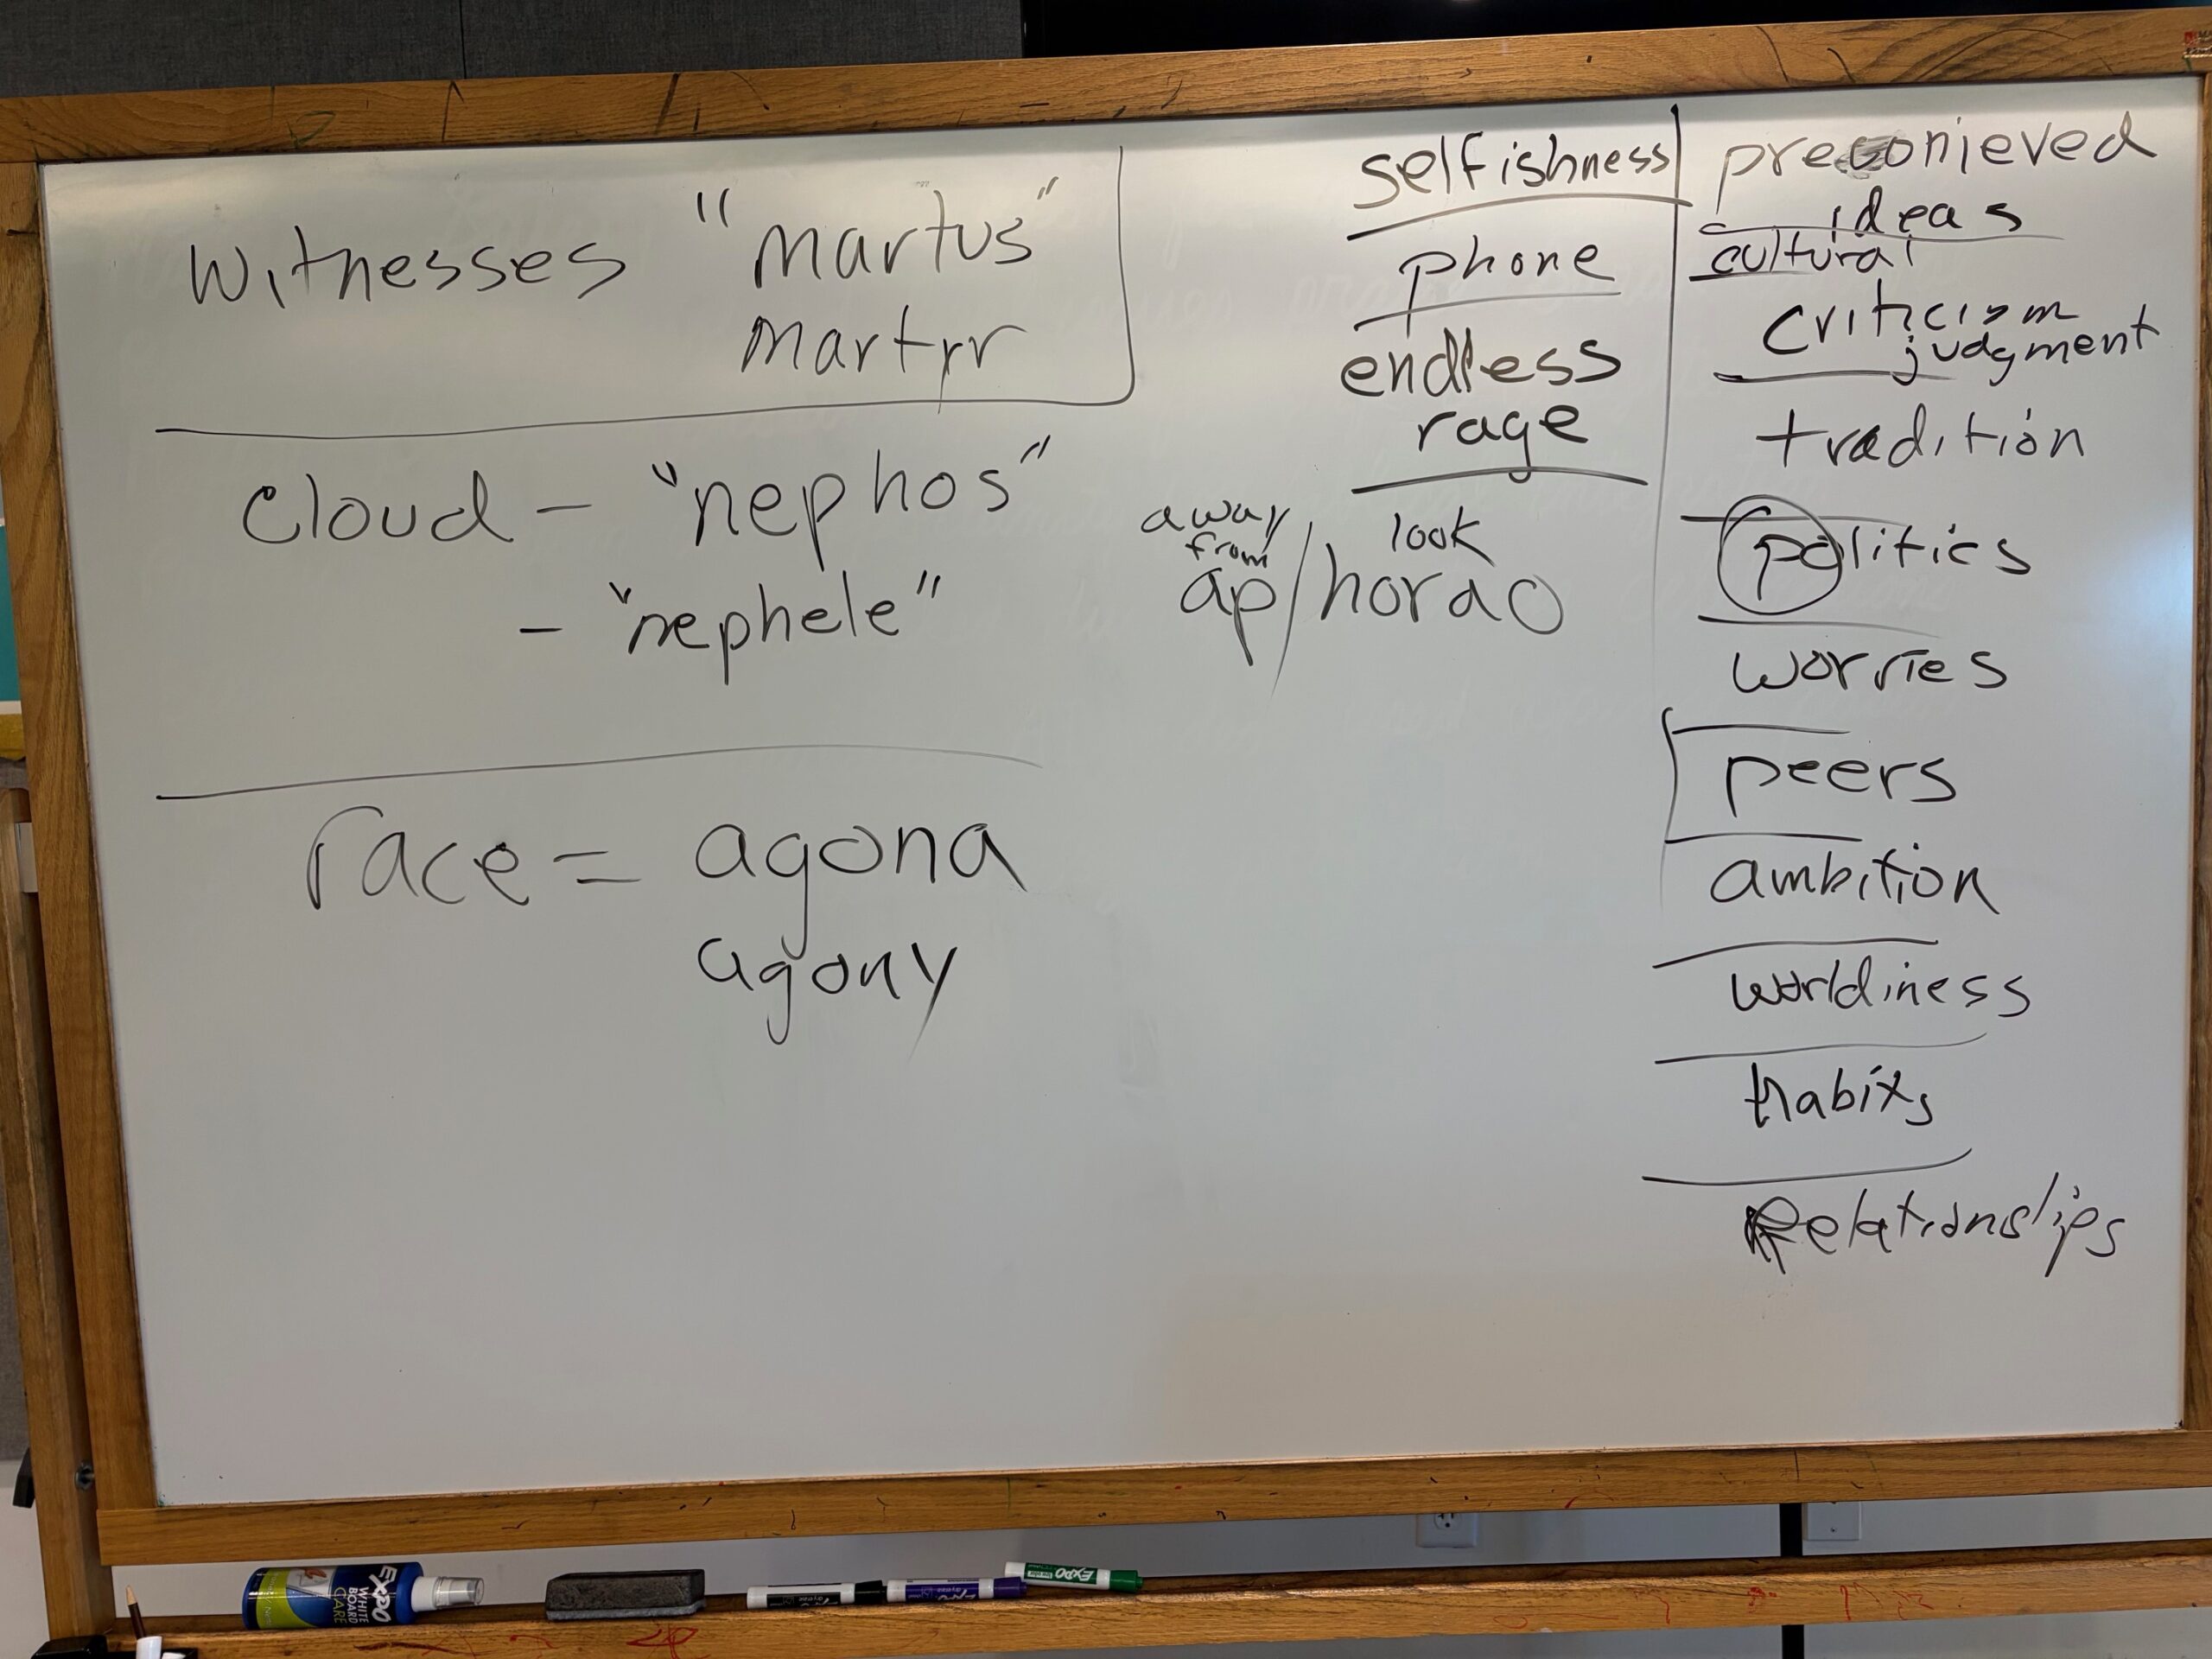 witnesses "martus"
martyr
cloud - "nephos"
- "nephele"
race = agona
agony
selfishness
phone
endless
rage
away
from
look
ap/horao
preconieved
ideas
cultural
criticism
judgment
tradition
politics
worries
peers
ambition
worldiness
habits
Relationslips
EXPO
WHITE
BOARD
CARE
EXPO